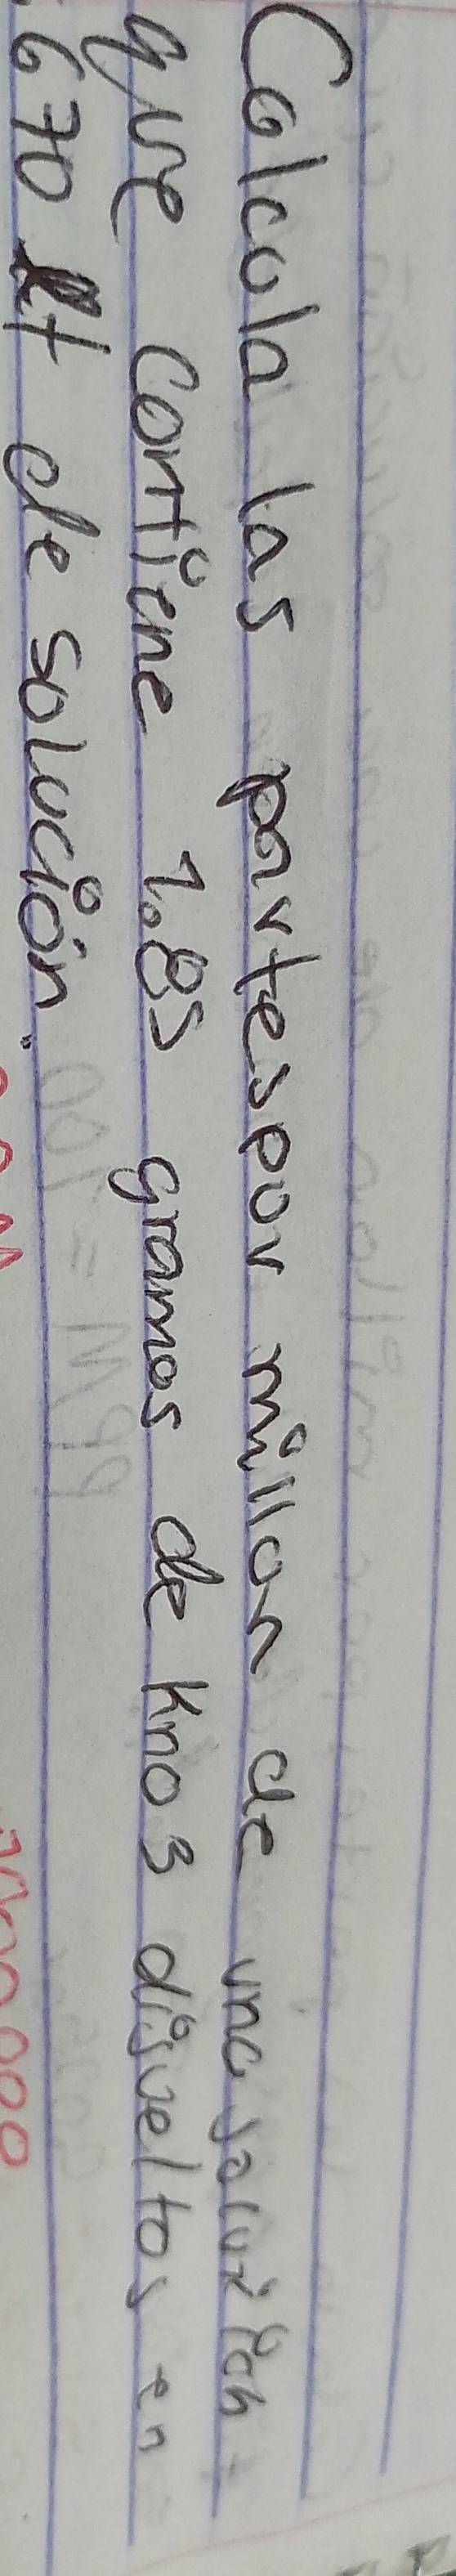 Calcula las partes por millon de una solución
que contiene 1.85 gramos de kno3 disueltos en
.670 lt de solución.